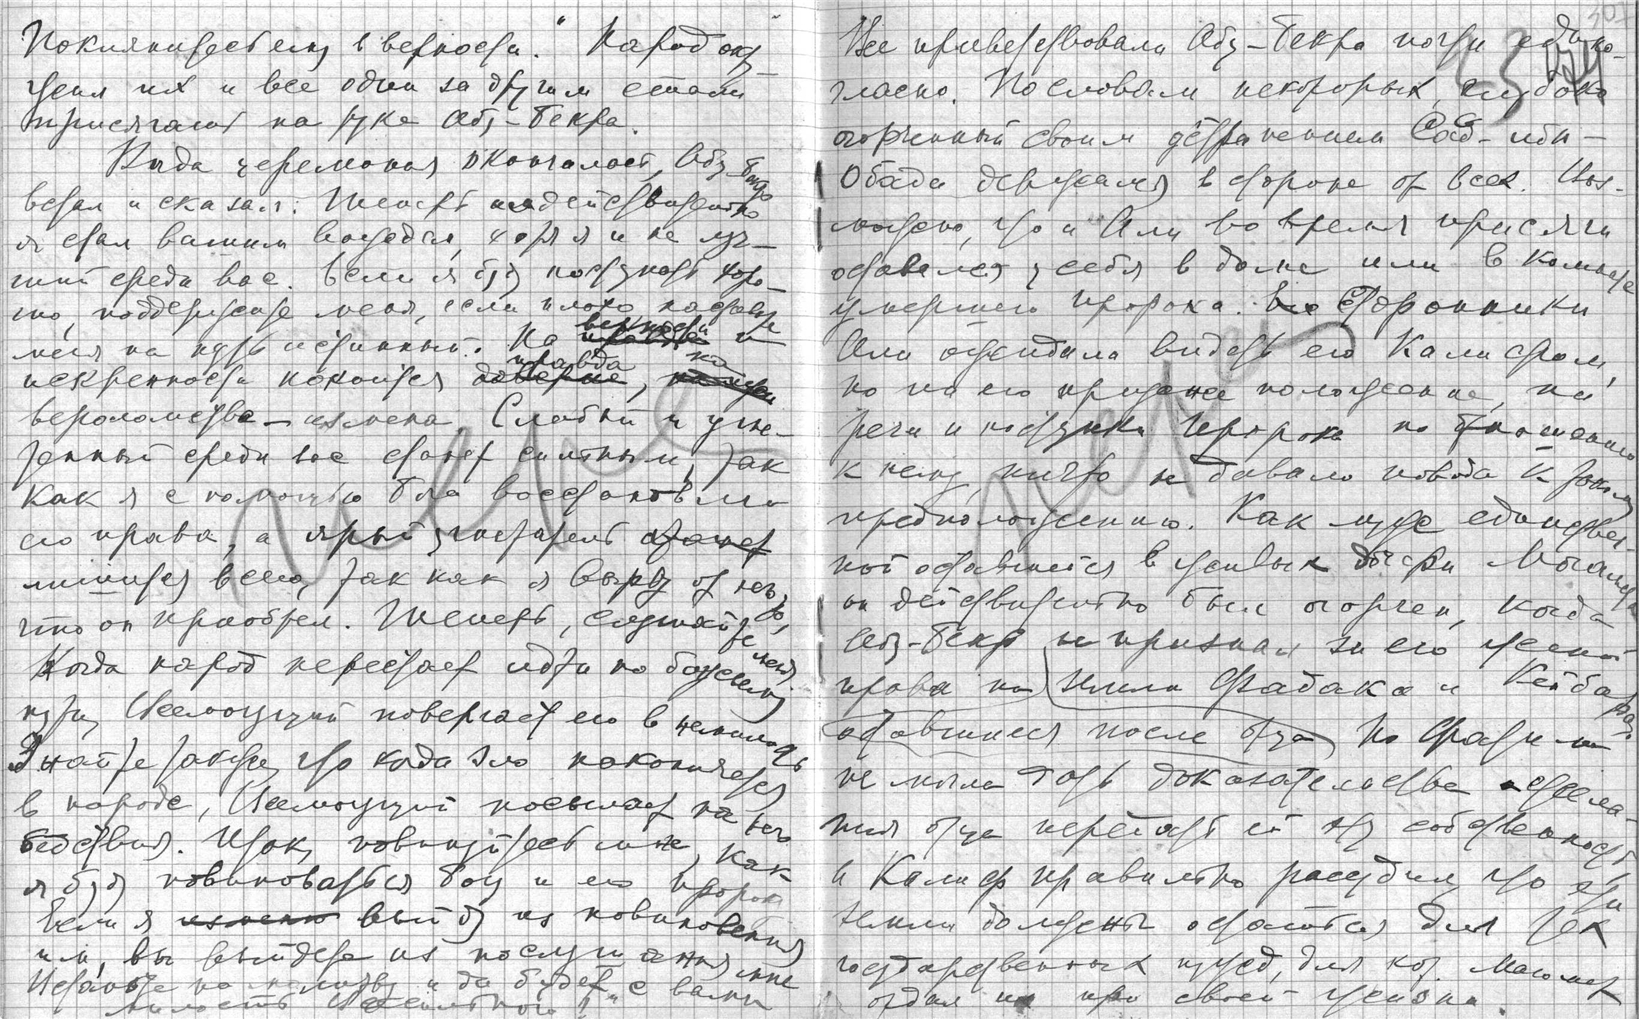 Поклянитесь ему в верности." Народ окру-
жил их и все один за другим стали
присягать на руке Абу-Бекра.
Когда церемония окончилась, Абу-Бекр
встал и сказал: Теперь действительно
я стал вашим вождем, хотя я и не луч-
ший среди вас. Если я буду поступать хоро-
шо, поддержите меня, если плохо наставьте
меня на путь истинный. На верности и
искренности покоится правда, на
вероломстве - измена. Слабый и угне-
тенный среди вас станет сильным, так
как я с помощью бога восстановлю
его права, а ярый угнетатель
лишится всего, так как я вырву от него,
что он приобрел. Теперь, слушайте меня
Когда народ перестает идти по божьему
пути, Всемогущий повергает его в
Знайте также, что когда зло накопляется
в народе, Всемогущий посылает на него
бедствия. Итак, повинуйтесь мне, как
я буду повиноваться богу и его пророку
Если я выйду из повиновения
им, вы выйдете из послушания мне
Встаньте на молитву и да будет с вами
милость Всесильного!"
307
Все приветствовали Абу-Бекра почти едино-
гласно. По словам некоторых, глубоко
огорченный своим устранением Саад-ибн-
Обада держался в стороне от всех. Воз-
можно, что и Али во время присяги
оставался у себя в доме или в комнате
умершего пророка. Сторонники
Али ожидали видеть его Калифом,
но ни его прежнее положение, ни
речи и поступки Пророка по отношению
к нему, ничто не давало повода к такому
предположению. Как муж единствен-
ной оставшейся в живых дочери Магомета
он действительно был огорчен, когда
Абу-Бекр не признал за его женой
права на земли Фадака и Кейбара,
оставшиеся после отца. Но Фатима
не могла дать доказательства желa-
ния отца передать ей эту собственность,
и Калиф правильно рассудил, что эти
земли должны остаться для тех
государственных нужд, для кот. Магомет
отдал их при своей жизни.